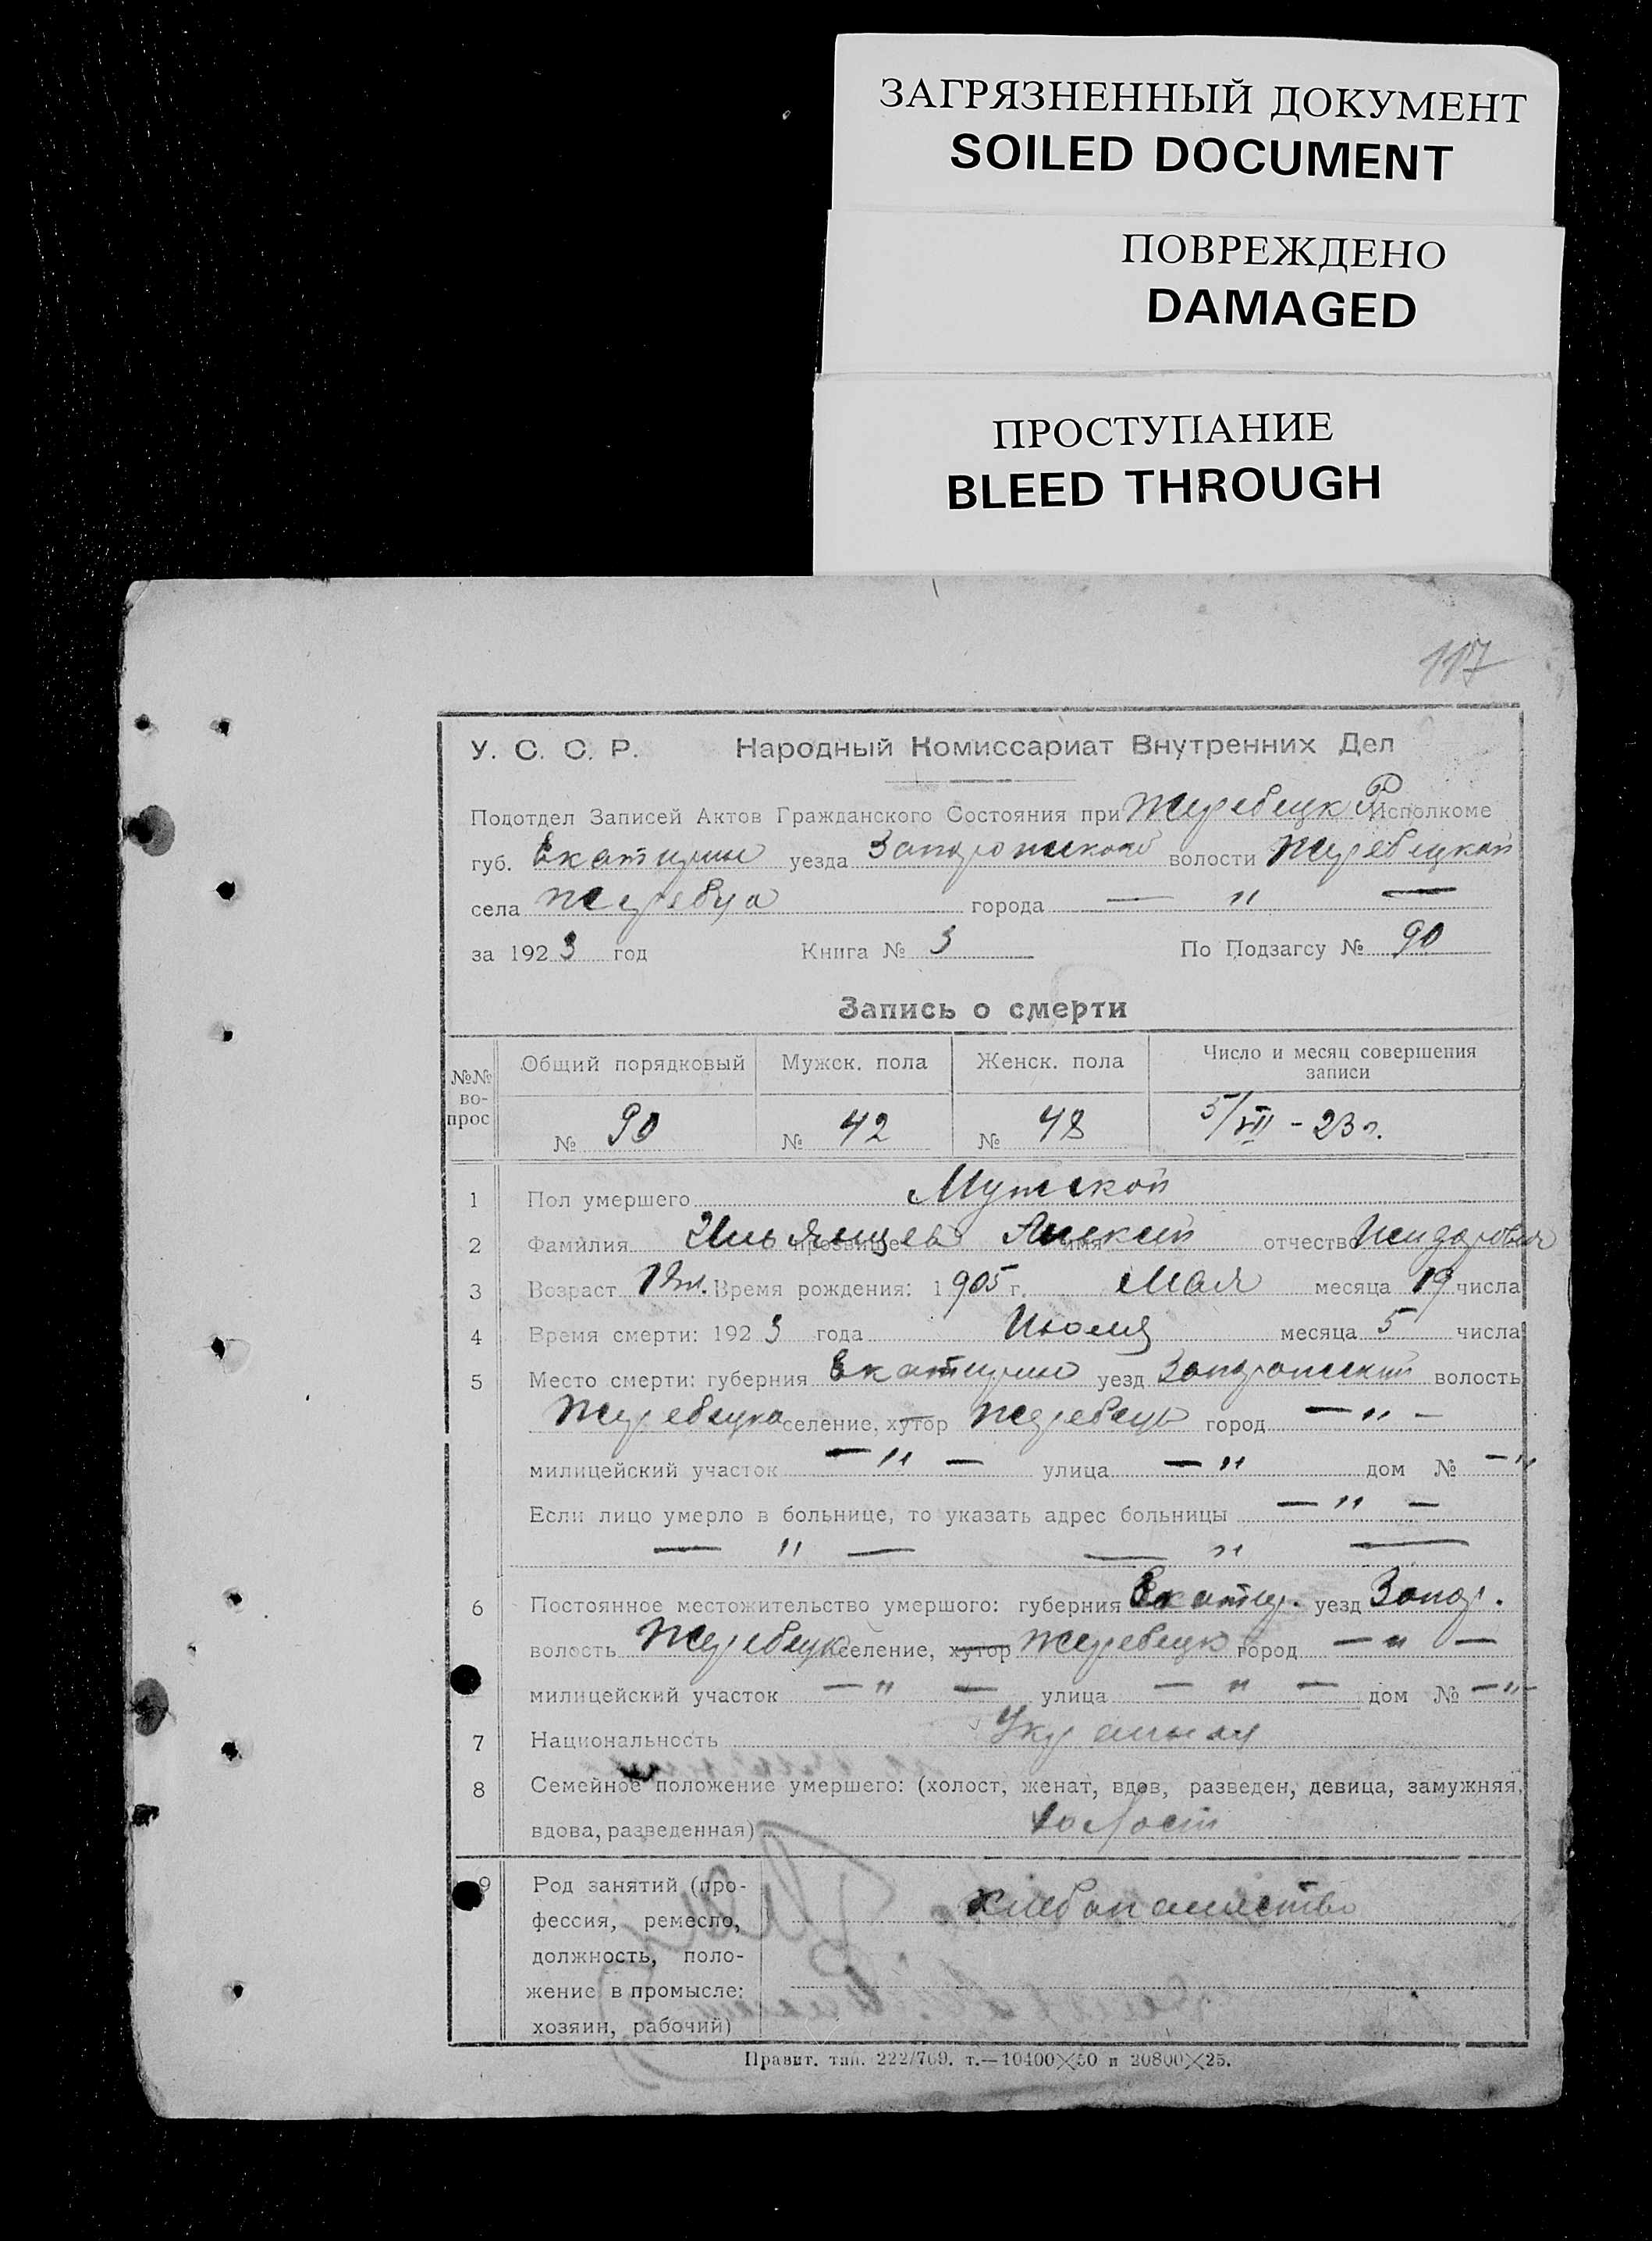 ЗАГРЯЗНЕННЫЙ ДОКУМЕНТ
SOILED DOCUMENT
ПОВРЕЖДЕНО
DAMAGED
ПРОСТУПАНИЕ
BLEED THROUGH
117
У. С. С. Р. Народный Комиссариат Внутренних Дел
Подотдел Записей Актов Гражданского Состояния при Жеребецк Р Исполкоме
губ. Екатирин уезда Запорожского волости Жеребецкой
села Жеребца города — „ —
за 1923 год Книга № 3 По Подзагсу № 90
Запись о смерти
№№ во-прос Общий порядковый Мужск. пола Женск. пола Число и месяц совершения записи
№ 90 № 42 № 48 5/VII - 23 г.
1 Пол умершего Мужской
2 Фамилия прозвище имя Алексей отчество
3 Возраст Время рождения: 1905 г. Мая месяца 19 числа
4 Время смерти: 1923 года Июля месяца 5 числа
5 Место смерти: губерния Екатирин уезд Запорожский волость
Жеребецка селение, хутор Жеребец город — „ —
милицейский участок — „ — улица — „ дом № — „
Если лицо умерло в больнице, то указать адрес больницы — „ —
— „ — — „ —
6 Постоянное местожительство умершого: губерния Екатир. уезд Запор.
волость Жеребецк селение, хутор Жеребецк город — „ —
милицейский участок — „ — улица — „ — дом № — „ —
7 Национальность
8 Семейное положение умершего: (холост, женат, вдов, разведен, девица, замужняя,
вдова, разведенная) холост
9 Род занятий (про-
фессия, ремесло, хлебопашество
должность, поло-
жение в промысле:
хозяин, рабочий)
Правит. тип. 222/769. т.—10400×50 и 20800×25.